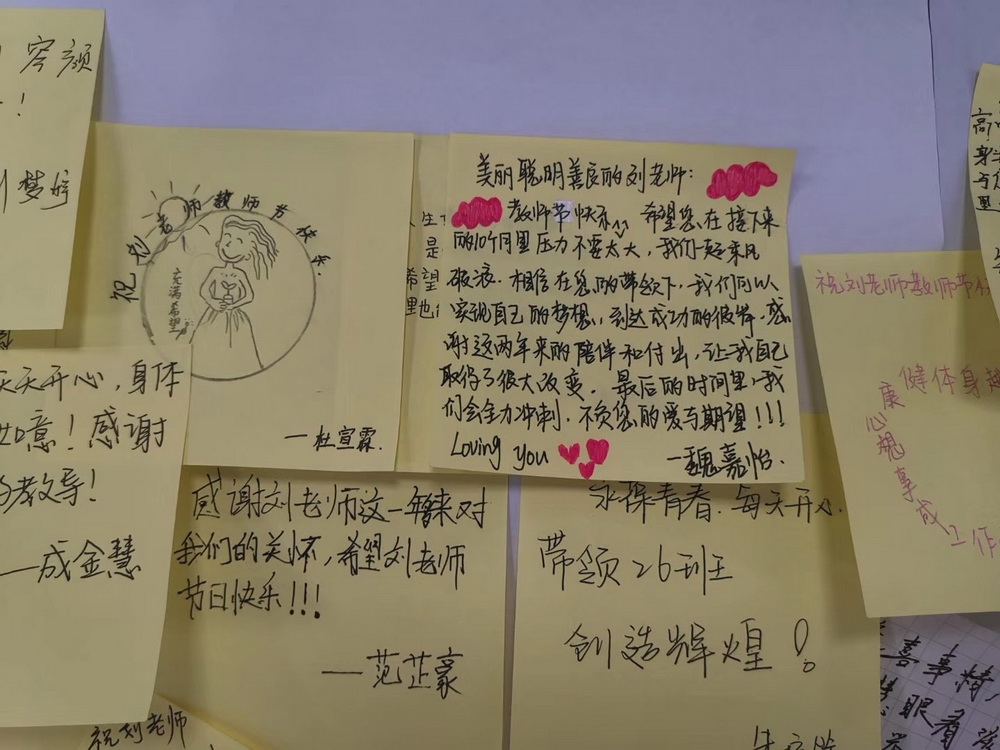 容颜
！
梦婷
祝刘老师教师节快乐.
充满希望
—杜宣霖.
美丽聪明善良的刘老师:
教师节快乐~ 希望您在接下来
的10个月里压力不要太大, 我们一起乘风
破浪. 相信在您的带领下, 我们可以
实现自己的梦想, 到达成功的彼岸. 感
谢这两年来的陪伴和付出, 让我自己
取得了很大改变. 最后的时间里, 我
们会全力冲刺. 不负您的爱与期望!!!
Loving you
—魏嘉怡.
祝刘老师教师节
健体身
康
心想事成
工作
天天开心, 身体
如意! 感谢
教导!
—成金慧
感谢刘老师这一年来对
我们的关怀, 希望刘老师
节日快乐!!!
—范芷豪
永葆青春. 每天开心.
带领26班
创造辉煌!
祝刘老师
喜事情
眼看